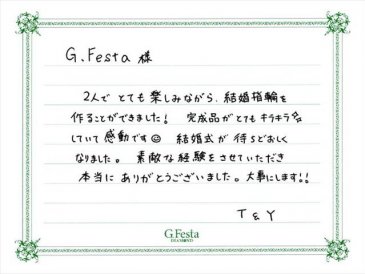 G.Festa 様
2人で とても 楽しみながら、結婚指輪を
作ることができました! 完成品がとてもキラキラ
していて 感動です☺ 結婚式が 待ちどおしく
なりました。素敵な経験をさせていただき
本当に ありがとうございました。大事にします!!
T & Y
G.Festa
DIAMOND